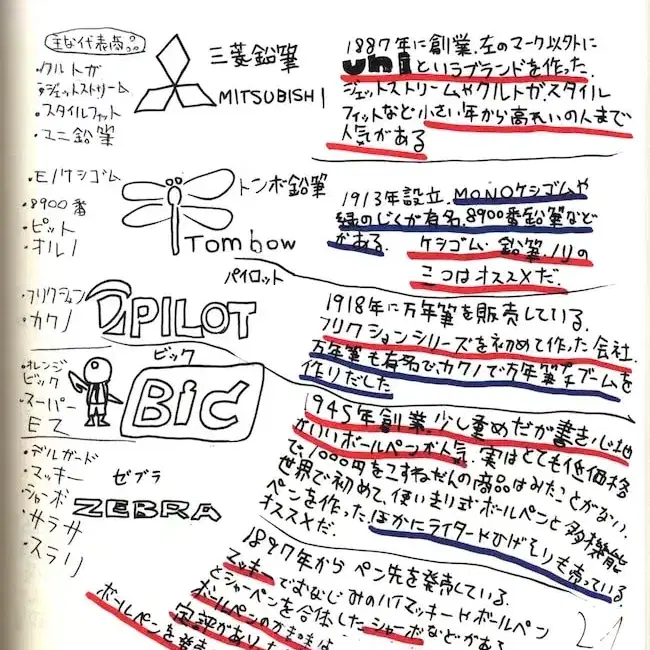 主な代表商品
・クルトガ
・ジェットストリーム
・スタイルフィット
・ユニ鉛筆
三菱鉛筆
MITSUBISHI
1887年に創業.左のマーク以外に
uniというブランドを作った.
ジェットストリームやクルトガ.スタイル
フィットなど小さい年から高れいの人まで
人気がある
・モノケシゴム
・8900番
・ピット
・オルノ
トンボ鉛筆
Tombow
1913年設立.MONOケシゴムや
緑のじくが有名.8900番鉛筆など
がある.
ケシゴム.鉛筆.ノリの
三つはオススメだ.
・フリクション
・カクノ
パイロット
PILOT
1918年に万年筆を販売している.
フリクションシリーズを初めて作った会社.
万年筆も有名でカクノで万年筆プチブームを
作りだした
・オレンジ
ビック
・スーパー
EZ
ビック
BIC
1945年創業.少し重めだが書き心地
がいいボールペンが人気.実はとても低価格
で、1000円をこすねだんの商品はみたことがない.
世界で初めて、使いきり式ボールペンと多機能
ペンを作った.ほかにライターやひげそりも売っている.
オススメだ.
・デルガード
・マッキー
・シャーボ
・サラサ
・スラリ
ゼブラ
ZEBRA
1897年からペン先を発売している.
マッキーでおなじみのハイマッキーやボールペン
とシャーペンを合体したシャーボなどがある
ボールペンのかき味は
定評があり
ボールペンを発
21